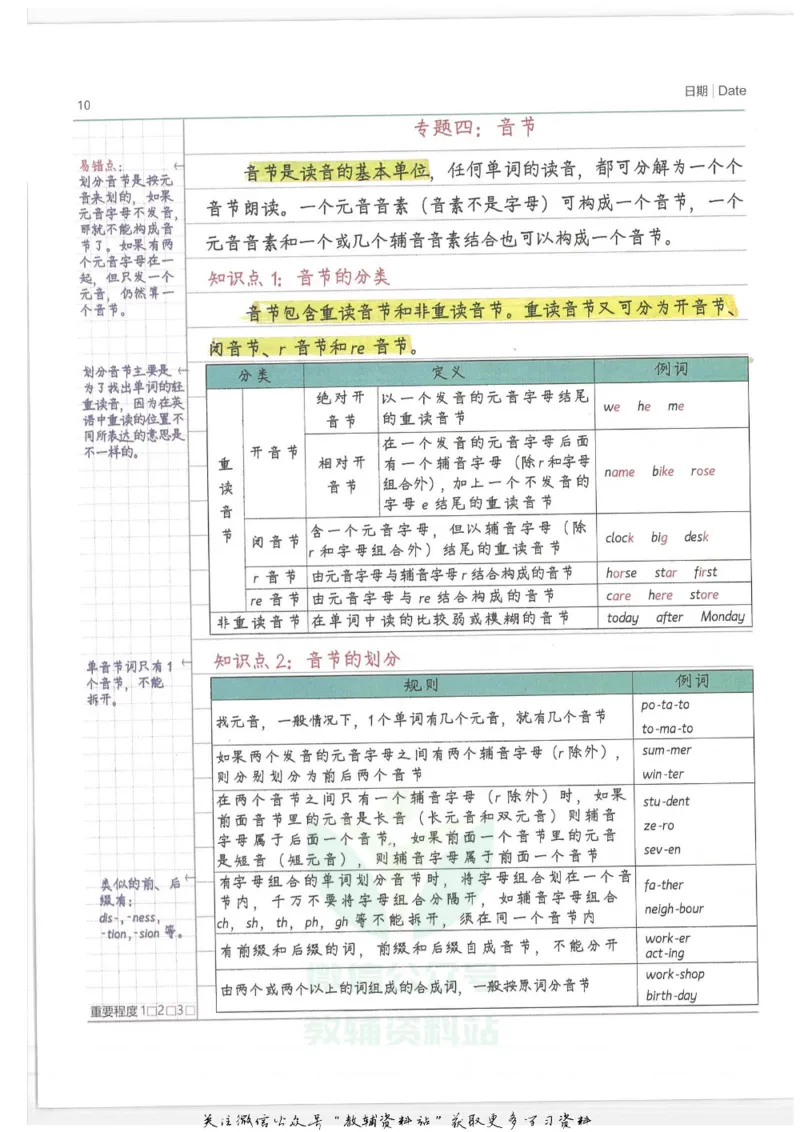 10
日期 | Date
专题四：音节
音节是读音的基本单位，任何单词的读音，都可分解为一个个
音节朗读。一个元音音素（音素不是字母）可构成一个音节，一个
元音音素和一个或几个辅音音素结合也可以构成一个音节。
易错点：
划分音节是按元
音来划的，如果
元音字母不发音，
那就不能构成音
节了。如果有两
个元音字母在一
起，但只发一个
元音，仍然算一
个音节。
知识点 1：音节的分类
音节包含重读音节和非重读音节。重读音节又可分为开音节、
闭音节、r 音节和 re 音节。
划分音节主要是
为了找出单词的轻
重读音，因为在英
语中重读的位置不
同所表达的意思是
不一样的。
分类 定义 例词
重读音节
开音节
绝对开
音节
以一个发音的元音字母结尾
的重读音节
we he me
相对开
音节
在一个发音的元音字母后面
有一个辅音字母（除r和字母
组合外），加上一个不发音的
字母 e 结尾的重读音节
name bike rose
闭音节
含一个元音字母，但以辅音字母（除
r 和字母组合外）结尾的重读音节
clock big desk
r 音节 由元音字母与辅音字母r结合构成的音节 horse star first
re 音节 由元音字母与 re 结合构成的音节 care here store
非重读音节 在单词中读的比较弱或模糊的音节 today after Monday
知识点 2：音节的划分
单音节词只有 1
个音节，不能
拆开。
规则 例词
找元音，一般情况下，1个单词有几个元音，就有几个音节
po-ta-to
to-ma-to
如果两个发音的元音字母之间有两个辅音字母（r 除外），
则分别划分为前后两个音节
sum-mer
win-ter
在两个音节之间只有一个辅音字母（r 除外）时，如果
前面音节里的元音是长音（长元音和双元音）则辅音
字母属于后面一个音节，如果前面一个音节里的元音
是短音（短元音），则辅音字母属于前面一个音节
stu-dent
ze-ro
sev-en
有字母组合的单词划分音节时，将字母组合划在一个音
节内，千万不要将字母组合分隔开，如辅音字母组合
ch，sh，th，ph，gh 等不能拆开，须在同一个音节内
fa-ther
neigh-bour
类似的前、后
缀有：
dis-，-ness，
-tion，-sion 等。
有前缀和后缀的词，前缀和后缀自成音节，不能分开
work-er
act-ing
由两个或两个以上的词组成的合成词，一般按原词分音节
work-shop
birth-day
重要程度 1□2□3□
微信公众号
教辅资料站
关注微信公众号"教辅资料站"获取更多学习资料